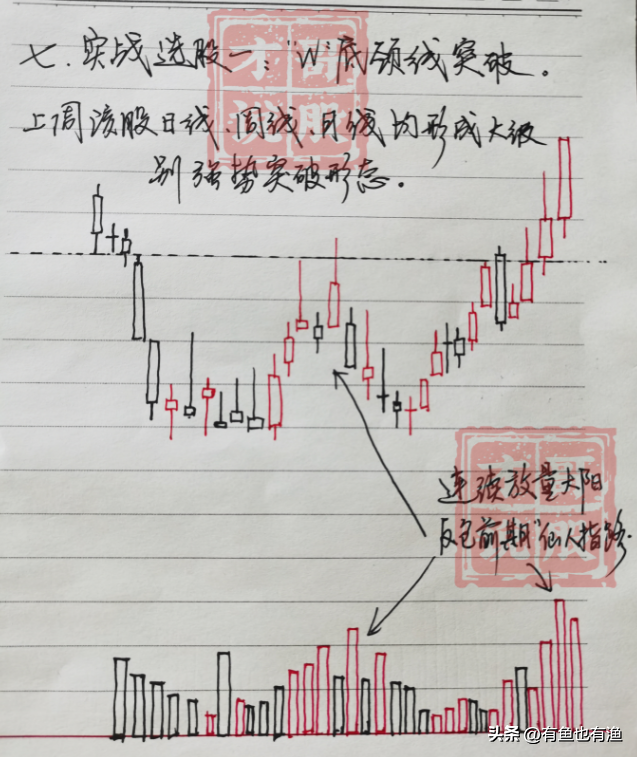 七.实战选股一:"W"底颈线突破.
上周该股日线、周线、月线均形成大级
别强势突破形态.
连续放量大阳
反包前期"仙人指路.
头条 @有鱼也有渔